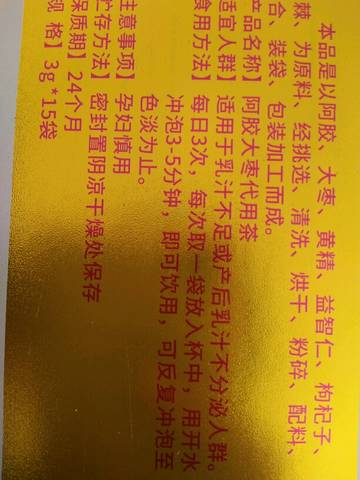 本品是以阿胶、大枣、黄精、益智仁、枸杞子、
棘、为原料、经挑选、清洗、烘干、粉碎、配料、
合、装袋、包装加工而成。
产品名称】阿胶大枣代用茶
适宜人群】适用于乳汁不足或产后乳汁不分泌人群。
食用方法】每日3次，每次取一袋放入杯中，用开水
冲泡3-5分钟，即可饮用，可反复冲泡至
色淡为止。
注意事项】孕妇慎用
贮存方法】密封置阴凉干燥处保存
保质期】24个月
规格】3g*15袋